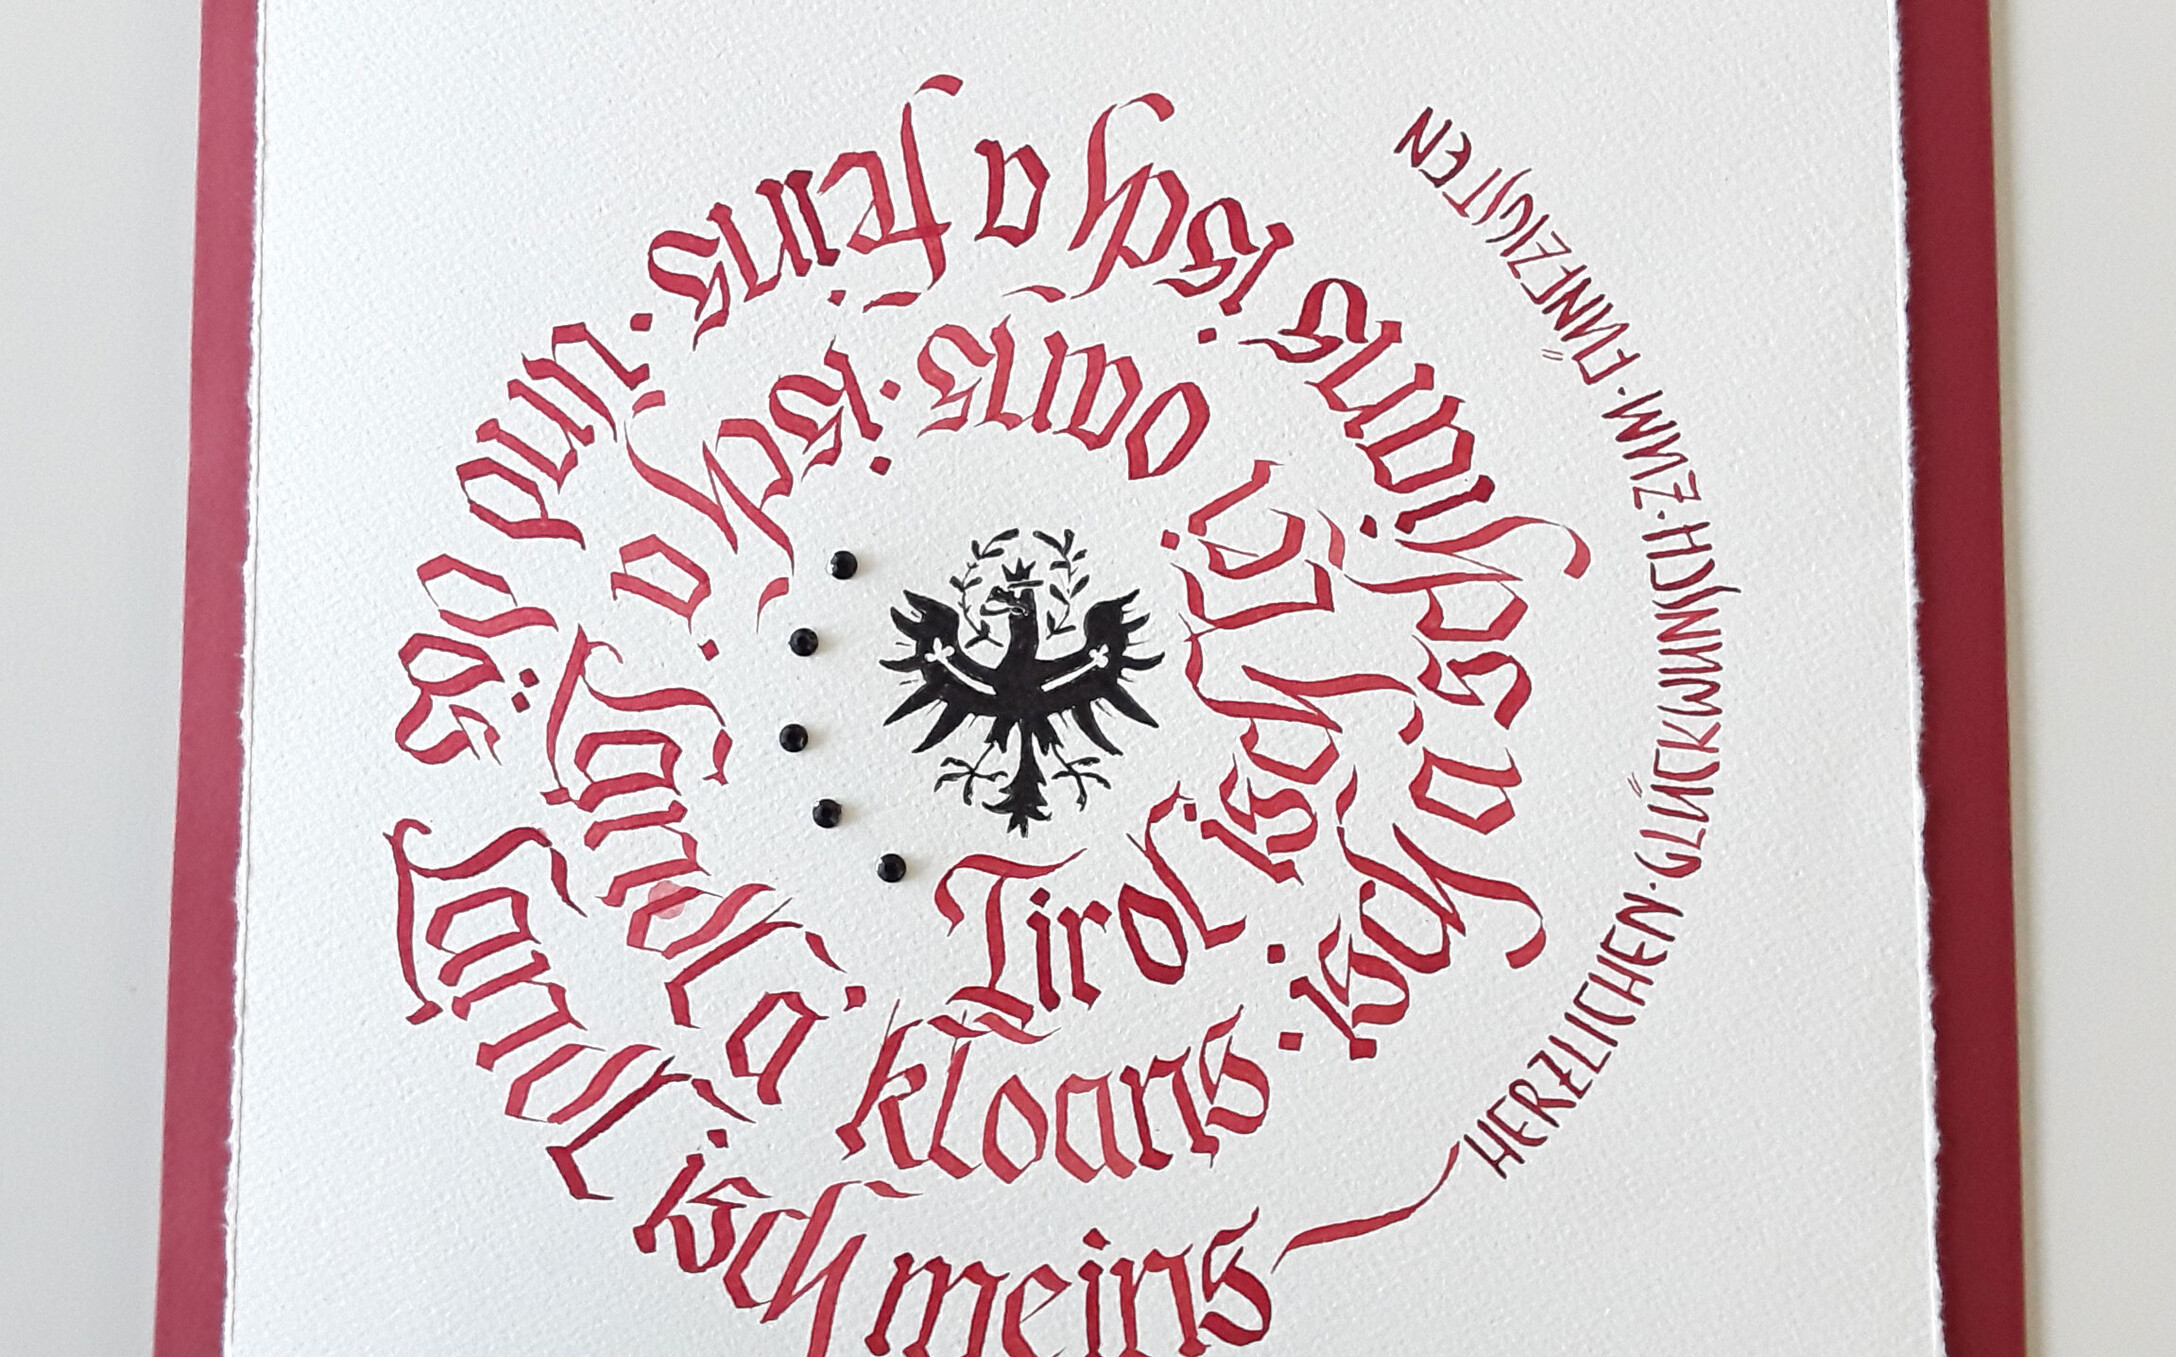 Tirol isch lei oans · isch a Landl a kloans · isch a schians isch a feins · und dös Landl isch meins
HERZLICHEN · GLÜCKWUNSCH · ZUM · FÜNFZIGSTEN